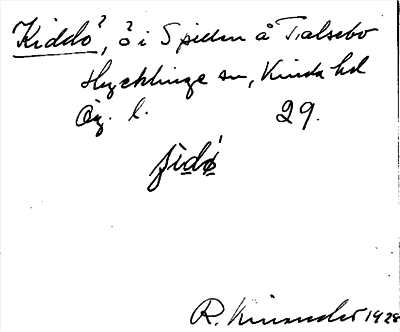 Kiddö?, ö i Spillen å Tralsebo
Hycklinge sn, Kinda hd
Ög. l. 29.
R. Kinander 1928